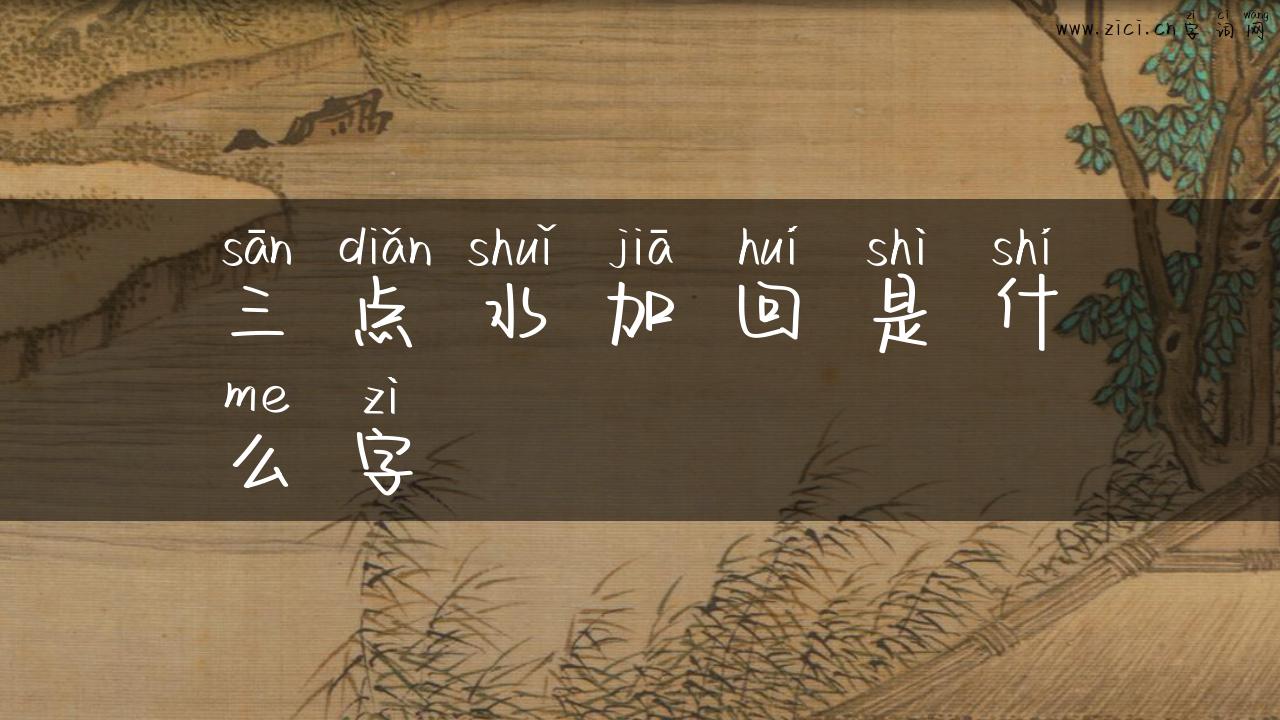 zì cí wǎng
www.zici.cn字词网
sān diǎn shuǐ jiā huí shì shí
三点水加回是什
me zì
么字